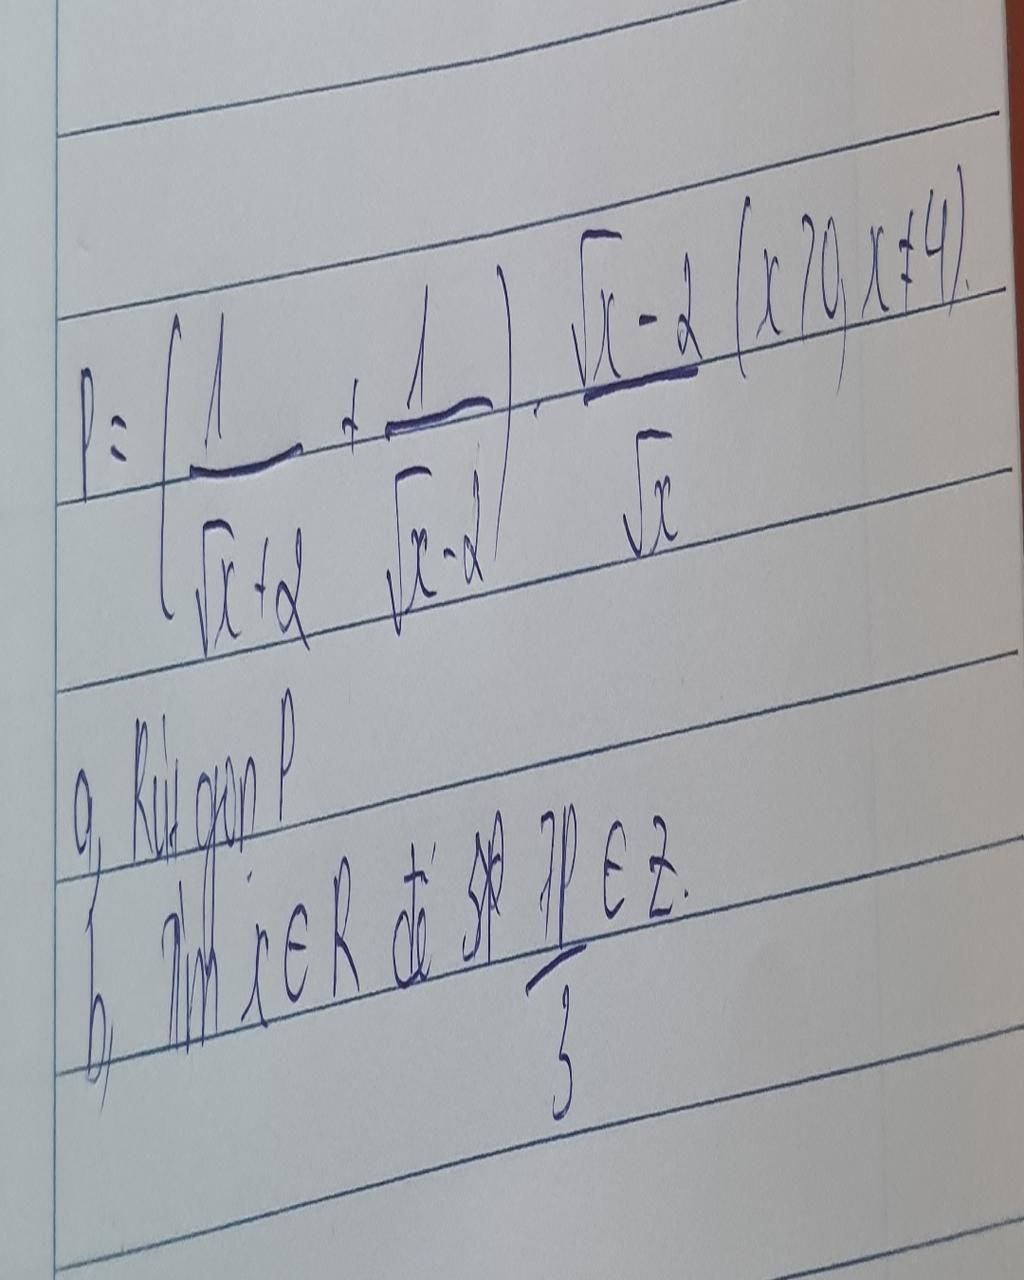 P = (1/(√x+2) + 1/(√x-2)) . (√x-2)/√x (x>0, x≠4).
a, Rút gọn P
b, Tìm x∈R để 7P/3 ∈ Z.